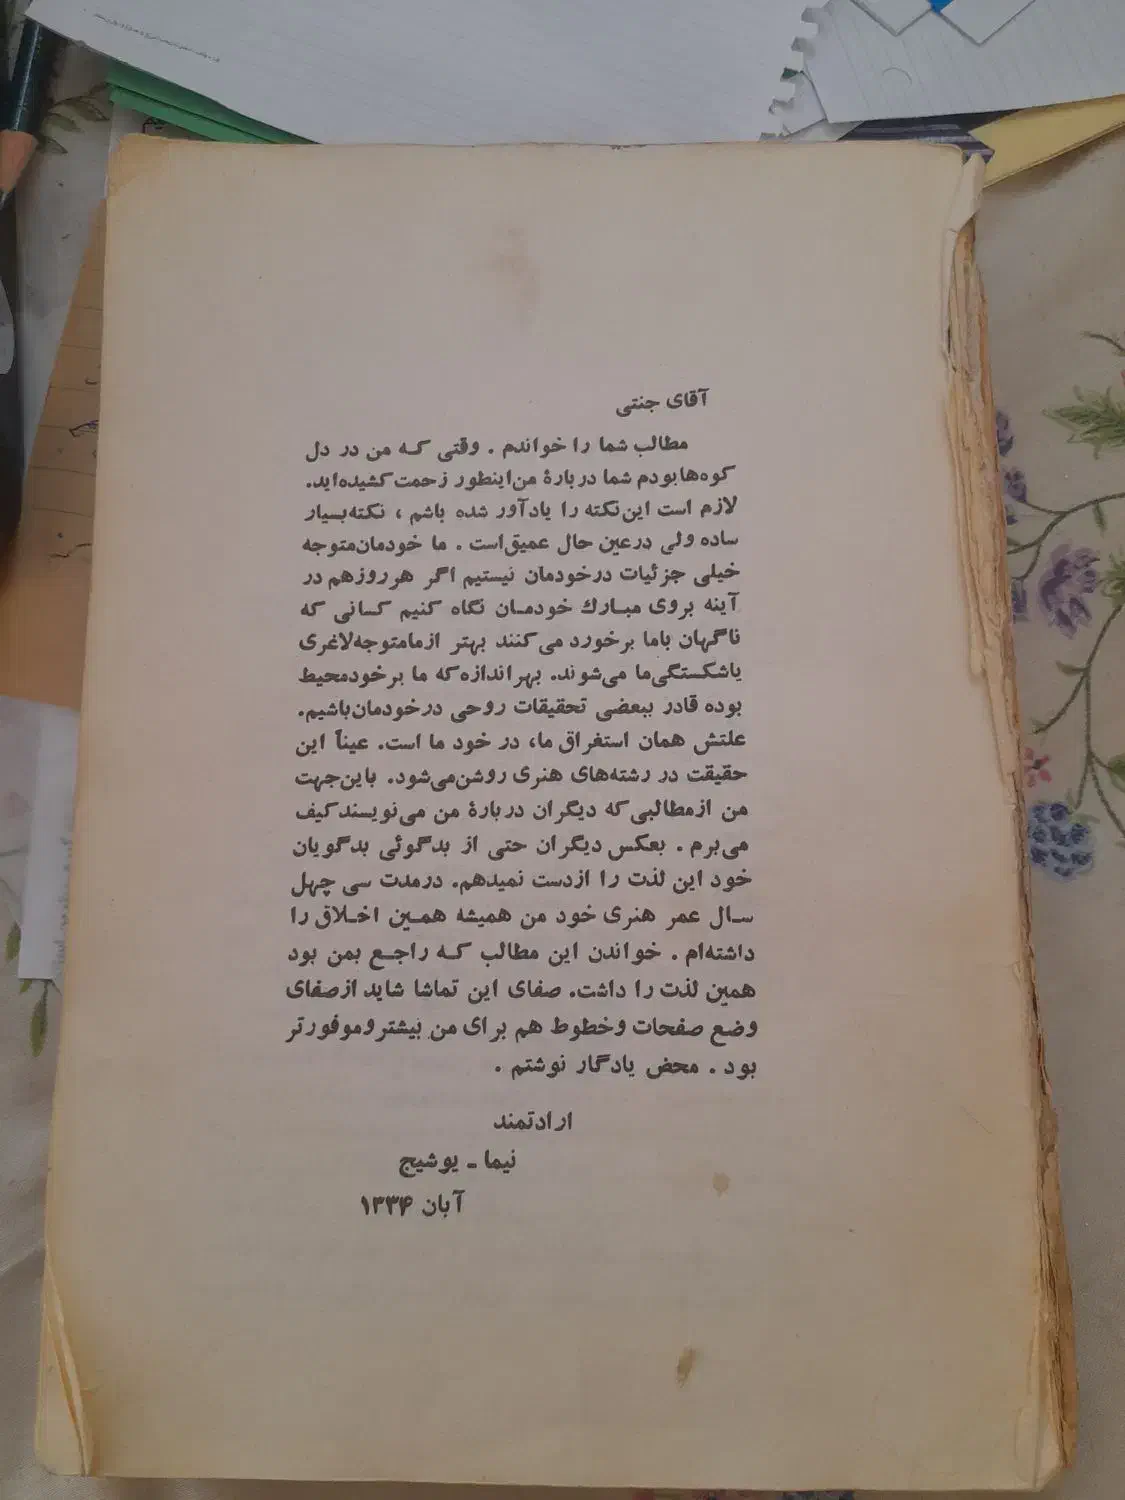 آقای جنتی
مطالب شما را خواندم . وقتی که من در دل
کوه‌ها بودم شما در بارهٔ من اینطور زحمت کشیده‌اید.
لازم است این نکته را یادآور شده باشم ، نکته بسیار
ساده ولی در عین حال عمیق است . ما خودمان متوجه
خیلی جزئیات در خودمان نیستیم اگر هر روز هم در
آینه بروی مبارک خودمان نگاه کنیم کسانی که
ناگهان باما برخورد می‌کنند بهتر از ما متوجه لاغری
یا شکستگی ما می‌شوند. بهر اندازه که ما بر خود محیط
بوده قادر ببعضی تحقیقات روحی در خودمان باشیم.
علتش همان استغراق ما، در خود ما است. عیناً این
حقیقت در رشته‌های هنری روشن می‌شود. باین جهت
من از مطالبی که دیگران در بارهٔ من می‌نویسند کیف
می‌برم . بعکس دیگران حتی از بدگوئی بدگویان
خود این لذت را از دست نمیدهم. در مدت سی چهل
سال عمر هنری خود من همیشه همین اخلاق را
داشته‌ام . خواندن این مطالب که راجع بمن بود
همین لذت را داشت. صفای این تماشا شاید از صفای
وضع صفحات و خطوط هم برای من بیشتر و موفورتر
بود . محض یادگار نوشتم .
ارادتمند
نیما ـ یوشیج
آبان ۱۳۳۴